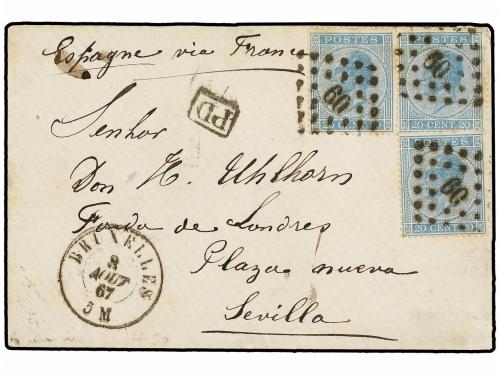 Espagne via France
PD
POSTES
POSTES
60
60
20 CENT. 20
20 CENT. 20
POSTES
60
20 CENT. 20
Senhor
Don H. Uhlhorn
Fonda de Londres
Plaza nueva
Sevilla
BRUXELLES
8
AOUT
67
5 M